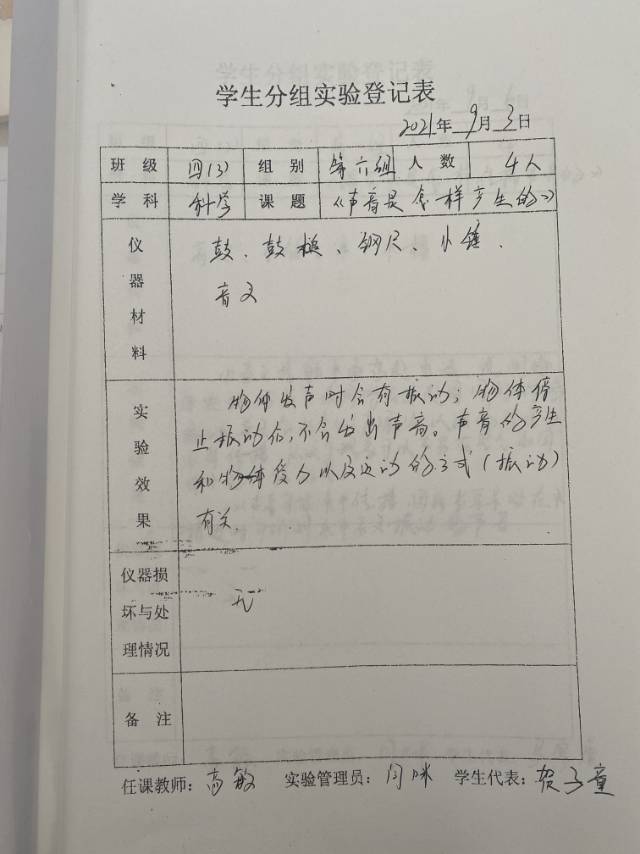 学生分组实验登记表
2021年 9月 3日
班 级 四(3) 组 别 第六组 人 数 4人
学 科 科学 课 题 《声音是怎样产生的》
仪器材料 鼓、鼓槌、钢尺、小锤、
音叉
实验效果 物体发声时会有振动；物体停
止振动后,不会发出声音。声音的产生
和物体受力以及运动的方式(振动)
有关。
仪器损
坏与处 无
理情况
备 注
任课教师：高敏 实验管理员：闫咪 学生代表：贺子童